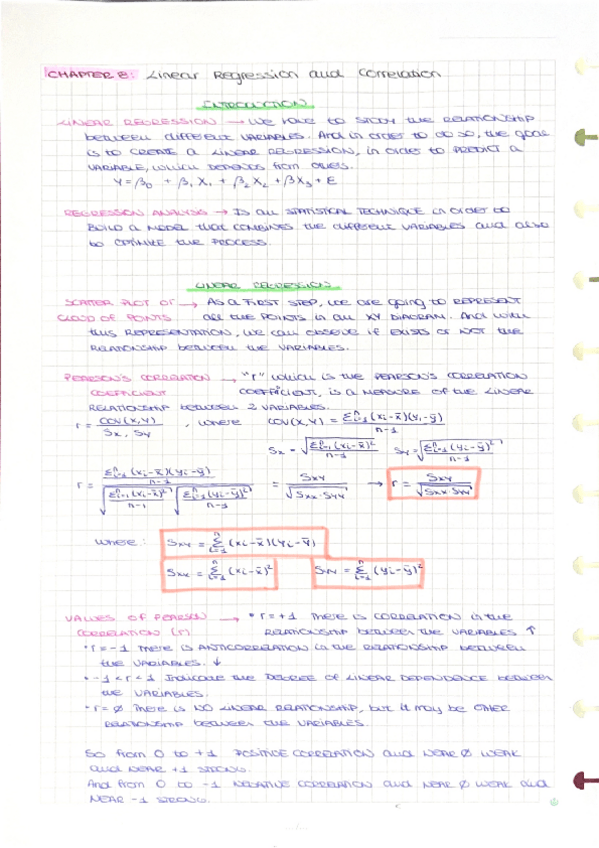 CHAPTER 8: Linear Regression and Correlation
INTRODUCTION
LINEAR REGRESSION → WE HAVE TO STUDY THE RELATIONSHIP
between different VARIABLES. And in order to do so, the goal
is to CREATE A LINEAR REGRESSION, in order to PREDICT A
VARIABLE, which DEPENDS from others.
Y = β0 + β1 X1 + β2 X2 + βX3 + E
REGRESSION ANALYSIS → Is an STATISTICAL TECHNIQUE in order to
BUILD A MODEL THAT COMBINES THE DIFFERENT VARIABLES and also
to OPTIMIZE THE PROCESS.
LINEAR REGRESSION
SCATTER PLOT OR → AS A FIRST STEP, WE are going to REPRESENT
CLOUD OF POINTS all THE POINTS in an XY DIAGRAM. And with
this REPRESENTATION, WE can OBSERVE if EXISTS OR NOT THE
RELATIONSHIP BETWEEN THE VARIABLES.
PEARSON'S CORRELATION → "r" which is THE PEARSON'S CORRELATION
COEFFICIENT COEFFICIENT, is a MEASURE OF THE LINEAR
RELATIONSHIP between 2 VARIABLES.
r = COV(X,Y) / Sx · Sy , where COV(X,Y) = Σⁿi=1 (xi-x̄)(yi-ȳ) / n-1
Sx = √(Σⁿi=1 (xi-x̄)² / n-1) Sy = √(Σⁿi=1 (yi-ȳ)² / n-1)
r = (Σⁿi=1 (xi-x̄)(yi-ȳ) / n-1) / (√(Σⁿi=1 (xi-x̄)² / n-1) √(Σⁿi=1 (yi-ȳ)² / n-1)) = Sxy / √(Sxx · Syy) → r = Sxy / √(Sxx · Syy)
where: Sxy = Σⁿi=1 (xi-x̄)(yi-ȳ)
Sxx = Σⁿi=1 (xi-x̄)² Syy = Σⁿi=1 (yi-ȳ)²
VALUES OF PEARSON → • r = +1 THERE IS CORRELATION in the
CORRELATION (r) RELATIONSHIP between THE VARIABLES ↑
• r = -1 THERE IS ANTICORRELATION in the RELATIONSHIP BETWEEN
the VARIABLES. ↓
• -1 < r < 1 Indicate THE DEGREE OF LINEAR DEPENDENCE between
the VARIABLES.
• r = Ø THERE IS NO LINEAR RELATIONSHIP, but it may be OTHER
RELATIONSHIP between the VARIABLES.
So from 0 to +1 POSITIVE CORRELATION and NEAR Ø WEAK
and NEAR +1 STRONG.
And from 0 to -1 NEGATIVE CORRELATION and NEAR Ø WEAK and
NEAR -1 STRONG.